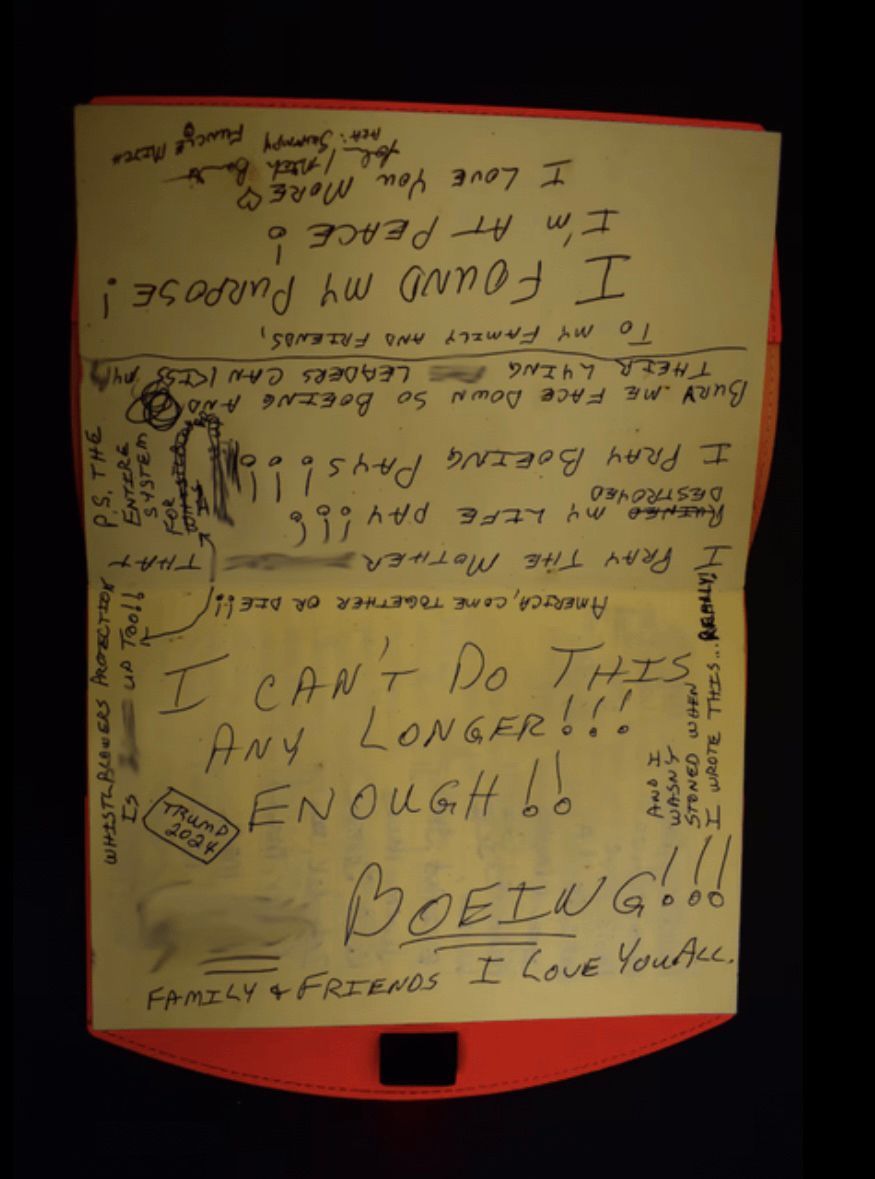 I CAN'T DO THIS
ANY LONGER!!!
ENOUGH!!
TRUMP
2024
BOEING!!!
FAMILY & FRIENDS I LOVE YOU ALL.
AND I
WASN'T
STONED WHEN
I WROTE THIS... REALLY!
AMERICA, COME TOGETHER OR DIE!!
I PRAY THE MOTHER THAT
RUINED DESTROYED MY LIFE PAY!!!
I PRAY BOEING PAYS!!!
BURY ME FACE DOWN SO BOEING AND
THEIR LYING LEADERS CAN KISS MY
P.S. THE
ENTIRE
SYSTEM
FOR
WHISTLEBLOWERS PROTECTION
IS UP TOO!!
TO MY FAMILY AND FRIENDS,
I FOUND MY PURPOSE!
I'M AT PEACE!
I LOVE YOU MORE